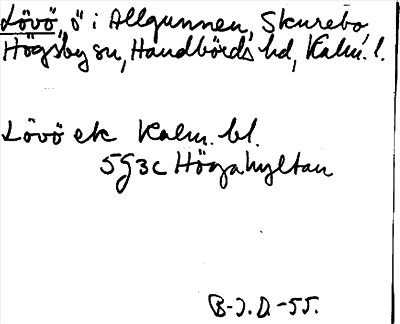 Lövö, ö i Allgunnen, Skurebo,
Högsby sn, Handbörds hd, Kalm. l.
Lövö ek Kalm. bl.
5G3c Högahyltan
B-J.D.-55.